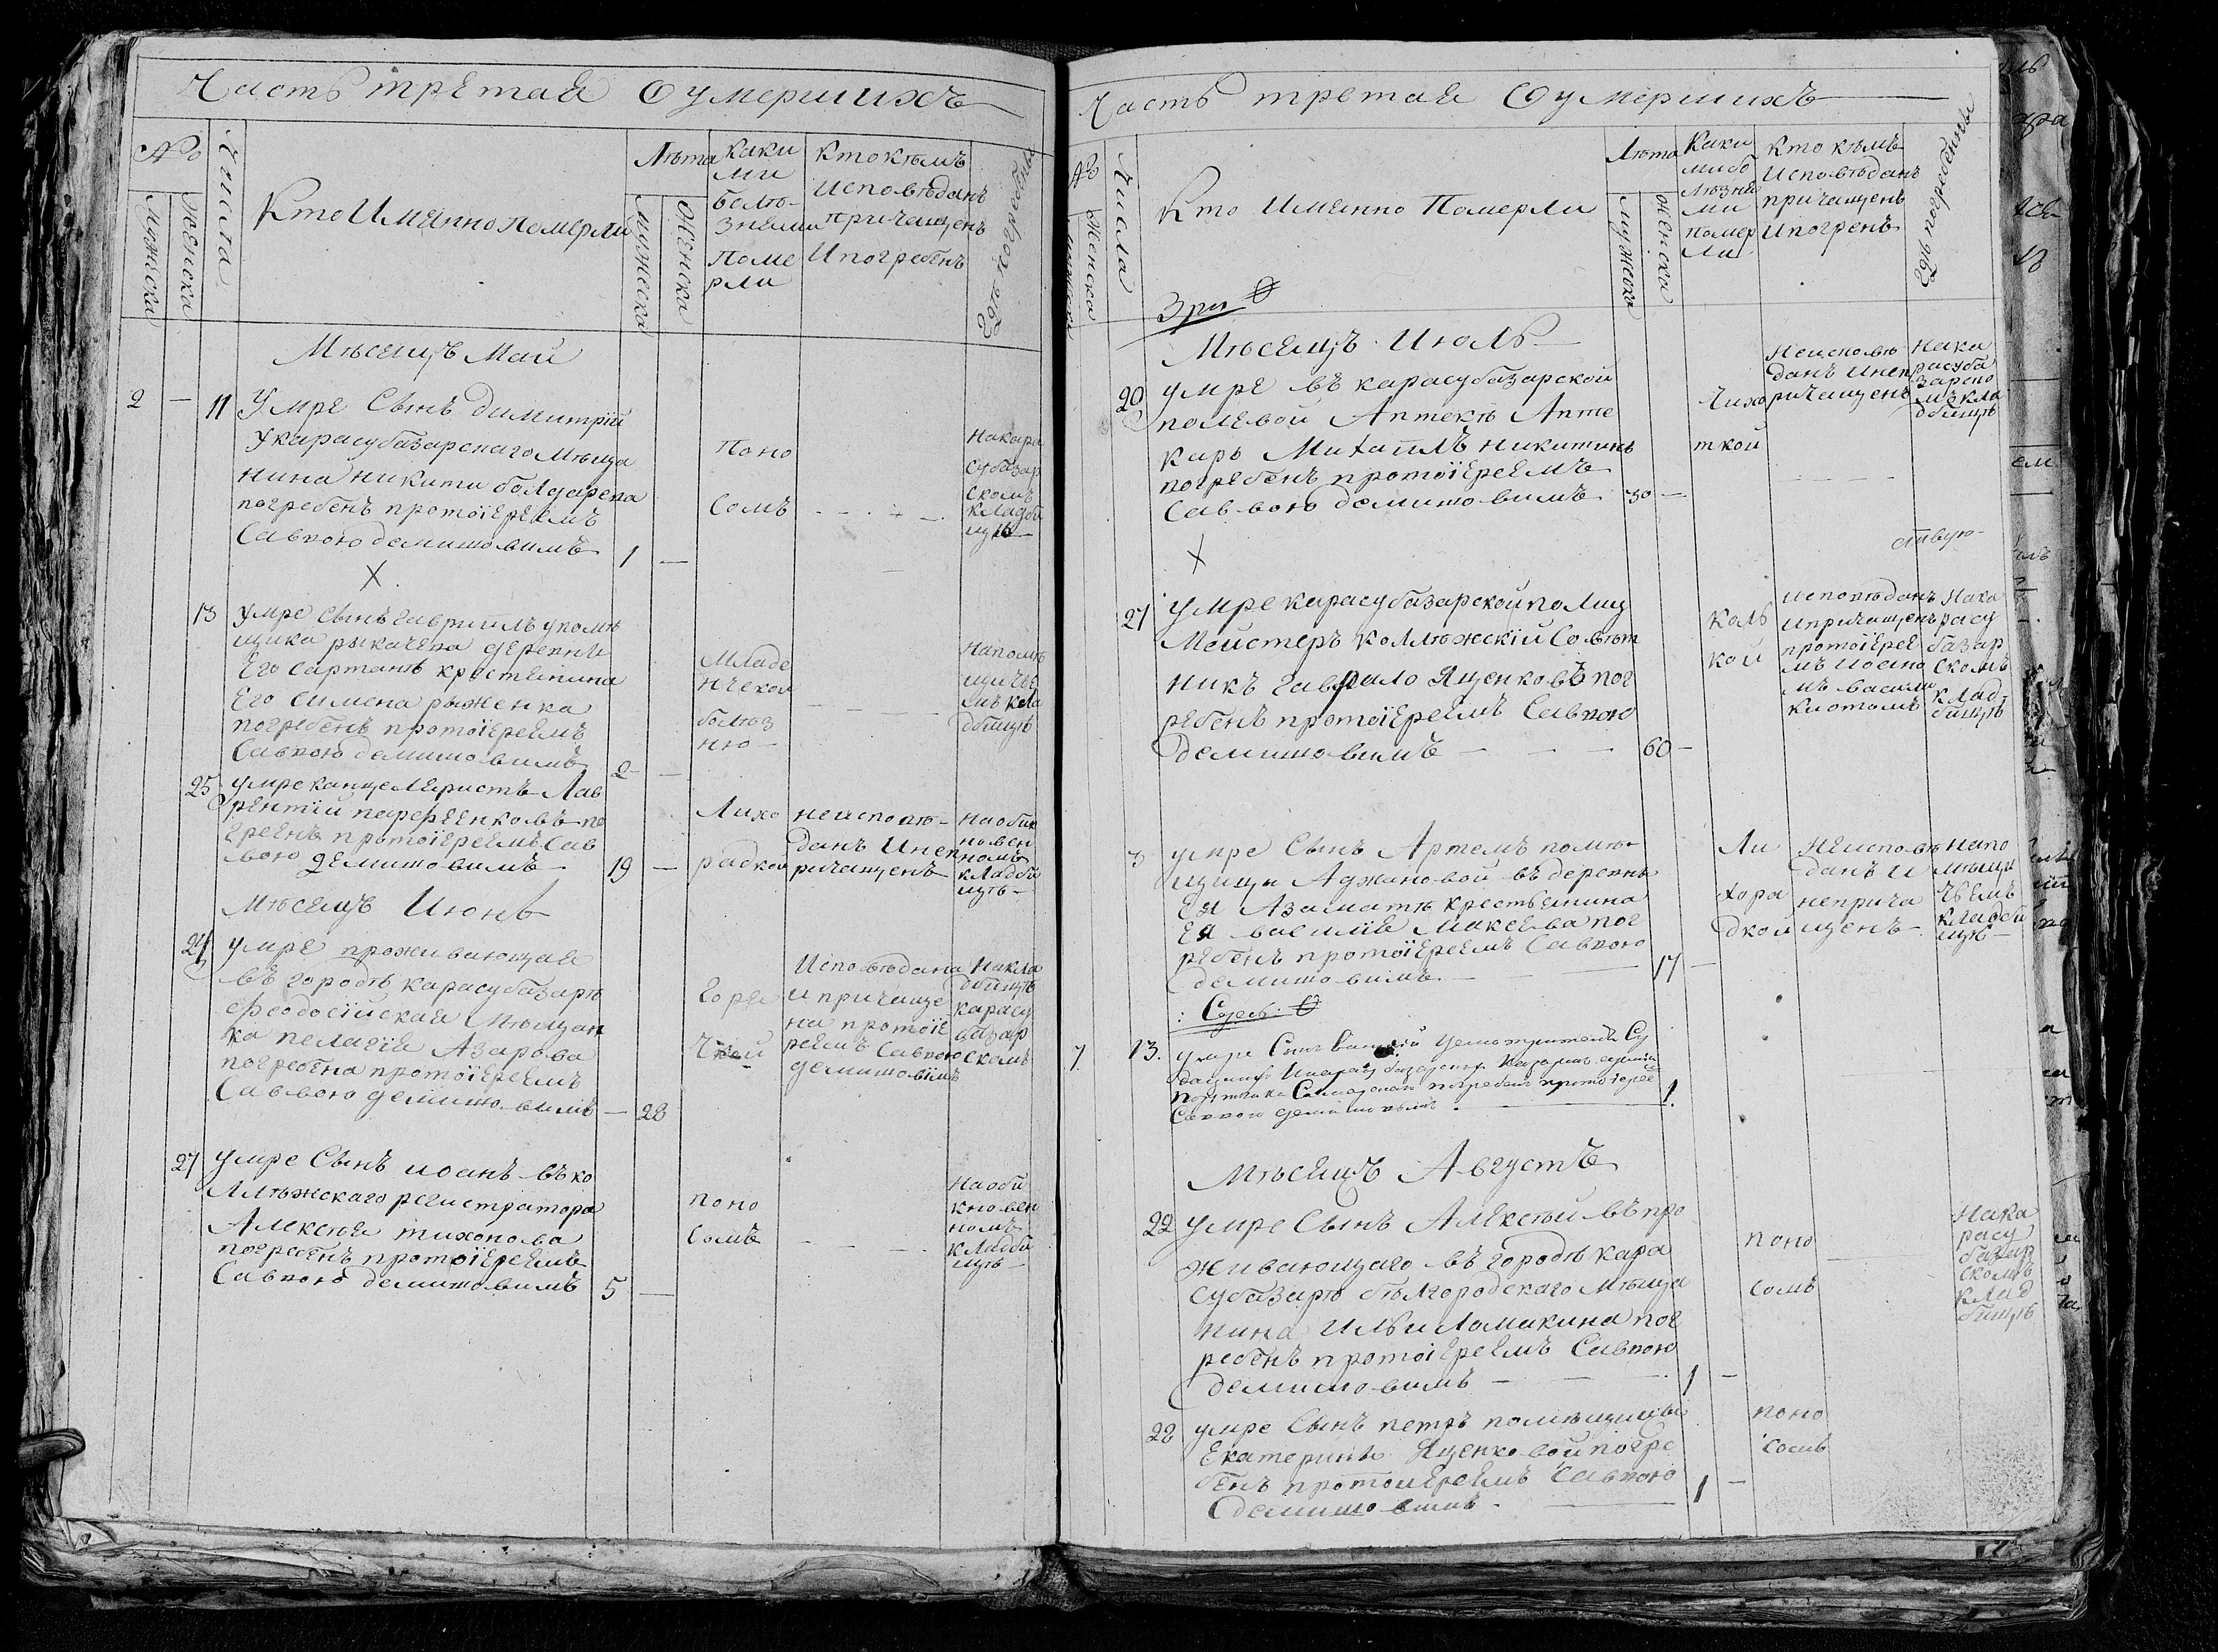 Часть третая Оумершихъ
№
Мужеска
Женска
Числа
Кто Имянно Померли
Лѣта
Мужеска
Женска
Каки
ми
болѣ-
знями
Поме
рли
Кто кѣмъ
Исповѣданъ
причащенъ
И погребенъ
Гдѣ погребены
Мѣсяцъ Май
2 — 11
Умре Сынъ димитрій
У карасубазарскаго Мѣща
нина никити
погребенъ протоіереемъ
Саввою демишовимъ 1 —
Поно
Сомъ
На кара
субазар
скомъ
кладби
щѣ
X
13
умре сынъ гавриилъ у помѣ
щика рыкачева деревни
Его сартанѣ крестянина
Его симена рыженка
погребенъ протоіереемъ
Саввою демишовимъ 2 —
Младе
нческою
болѣз
нію
На помѣ
щичье
мъ кла
дбищѣ
25
умре канцеляристъ Лав
рентій по
гребенъ протоіереемъ Сав
вою демишовимъ 19 —
Лихо
радкой
не исповѣ-
данъ И неп
ричащенъ
На обик
новен
номъ
кладби
щѣ
Мѣсяцъ Июнь
24
умре проживающая
въ городѣ карасубазарѣ
феодосійская Мѣщан
ка пелагія Азарова
погребена протоіереемъ
Саввою демишовимъ — 28
Горя
чкой
Исповѣдана
и причаще
на протоіе
реемъ Саввою
демишовімъ
На кла
дбищѣ
карасу
базар
скомъ
27
умре Сынъ иоанъ въ ко
ллѣжскаго регистратора
Алексѣя тихонова
погребенъ протоіереемъ
Саввою демишовимъ 5 —
поно
сомъ
На оби
кновен
номъ
кладби
щѣ
Часть третая Оумершихъ
№
Женска
Числа
Кто Имянно Померли
Лѣта
Мужеска
Женска
Каки
ми бо
лѣзня
ми
помер
ли
Кто кѣмъ
Исповѣданъ
причащенъ
И погренъ
Гдѣ погребены
Зри
Мѣсяцъ Июль
20
умре въ карасубазарской
полевой Аптекѣ Апте
карь Михаилъ никитинъ
погребенъ протоіереемъ
Саввою демишовимъ 30 —
ткой
Неисповѣ
данъ инеп
ричащенъ
На ка
расуба
зарско
мъ кла
дбищѣ
X
27
умре карасубазарской полиц
Мейстеръ коллѣжскій Совѣт
никъ гаврило Яценковъ пог
ребенъ протоіереемъ Саввою
демишовимъ — — — 60 —
исповѣданъ
и причащенъ
протоіерее
мъ иоано
мъ васили
На ка
расу
базар
скомъ
клад-
бищѣ
умре Сынъ Артемъ помѣ-
щицы Аджановой въ деревнѣ
Ея Азаматѣ крестьянина
Ея василія Максева пог
ребенъ протоіереемъ Саввою
демишовимъ — 17 —
Ли
хора
дкой
Неисповѣ
данъ и
неприча
щенъ
На по
мѣщи
чьемъ
кладби
щѣ
13.
умре Сынъ
погребенъ протоіерее
Саввою демишовымъ — 1.
Мѣсяцъ Августъ
22
умре Сынъ Алексѣй въ про
живающаго въ городѣ кара
субазарѣ бѣлгородскаго Мѣща
нина Ильи Ламакина пог
ребенъ протоіереемъ Саввою
демишовимъ — — — 1 —
поно
сомъ
На ка
расу
базар
скомъ
клад
бищѣ
22
умре Сынъ петръ помѣщицы
Екатерины Яценковой погре
бенъ протоиереемъ Саввою
демишовимъ — 1 —
поно
сомъ